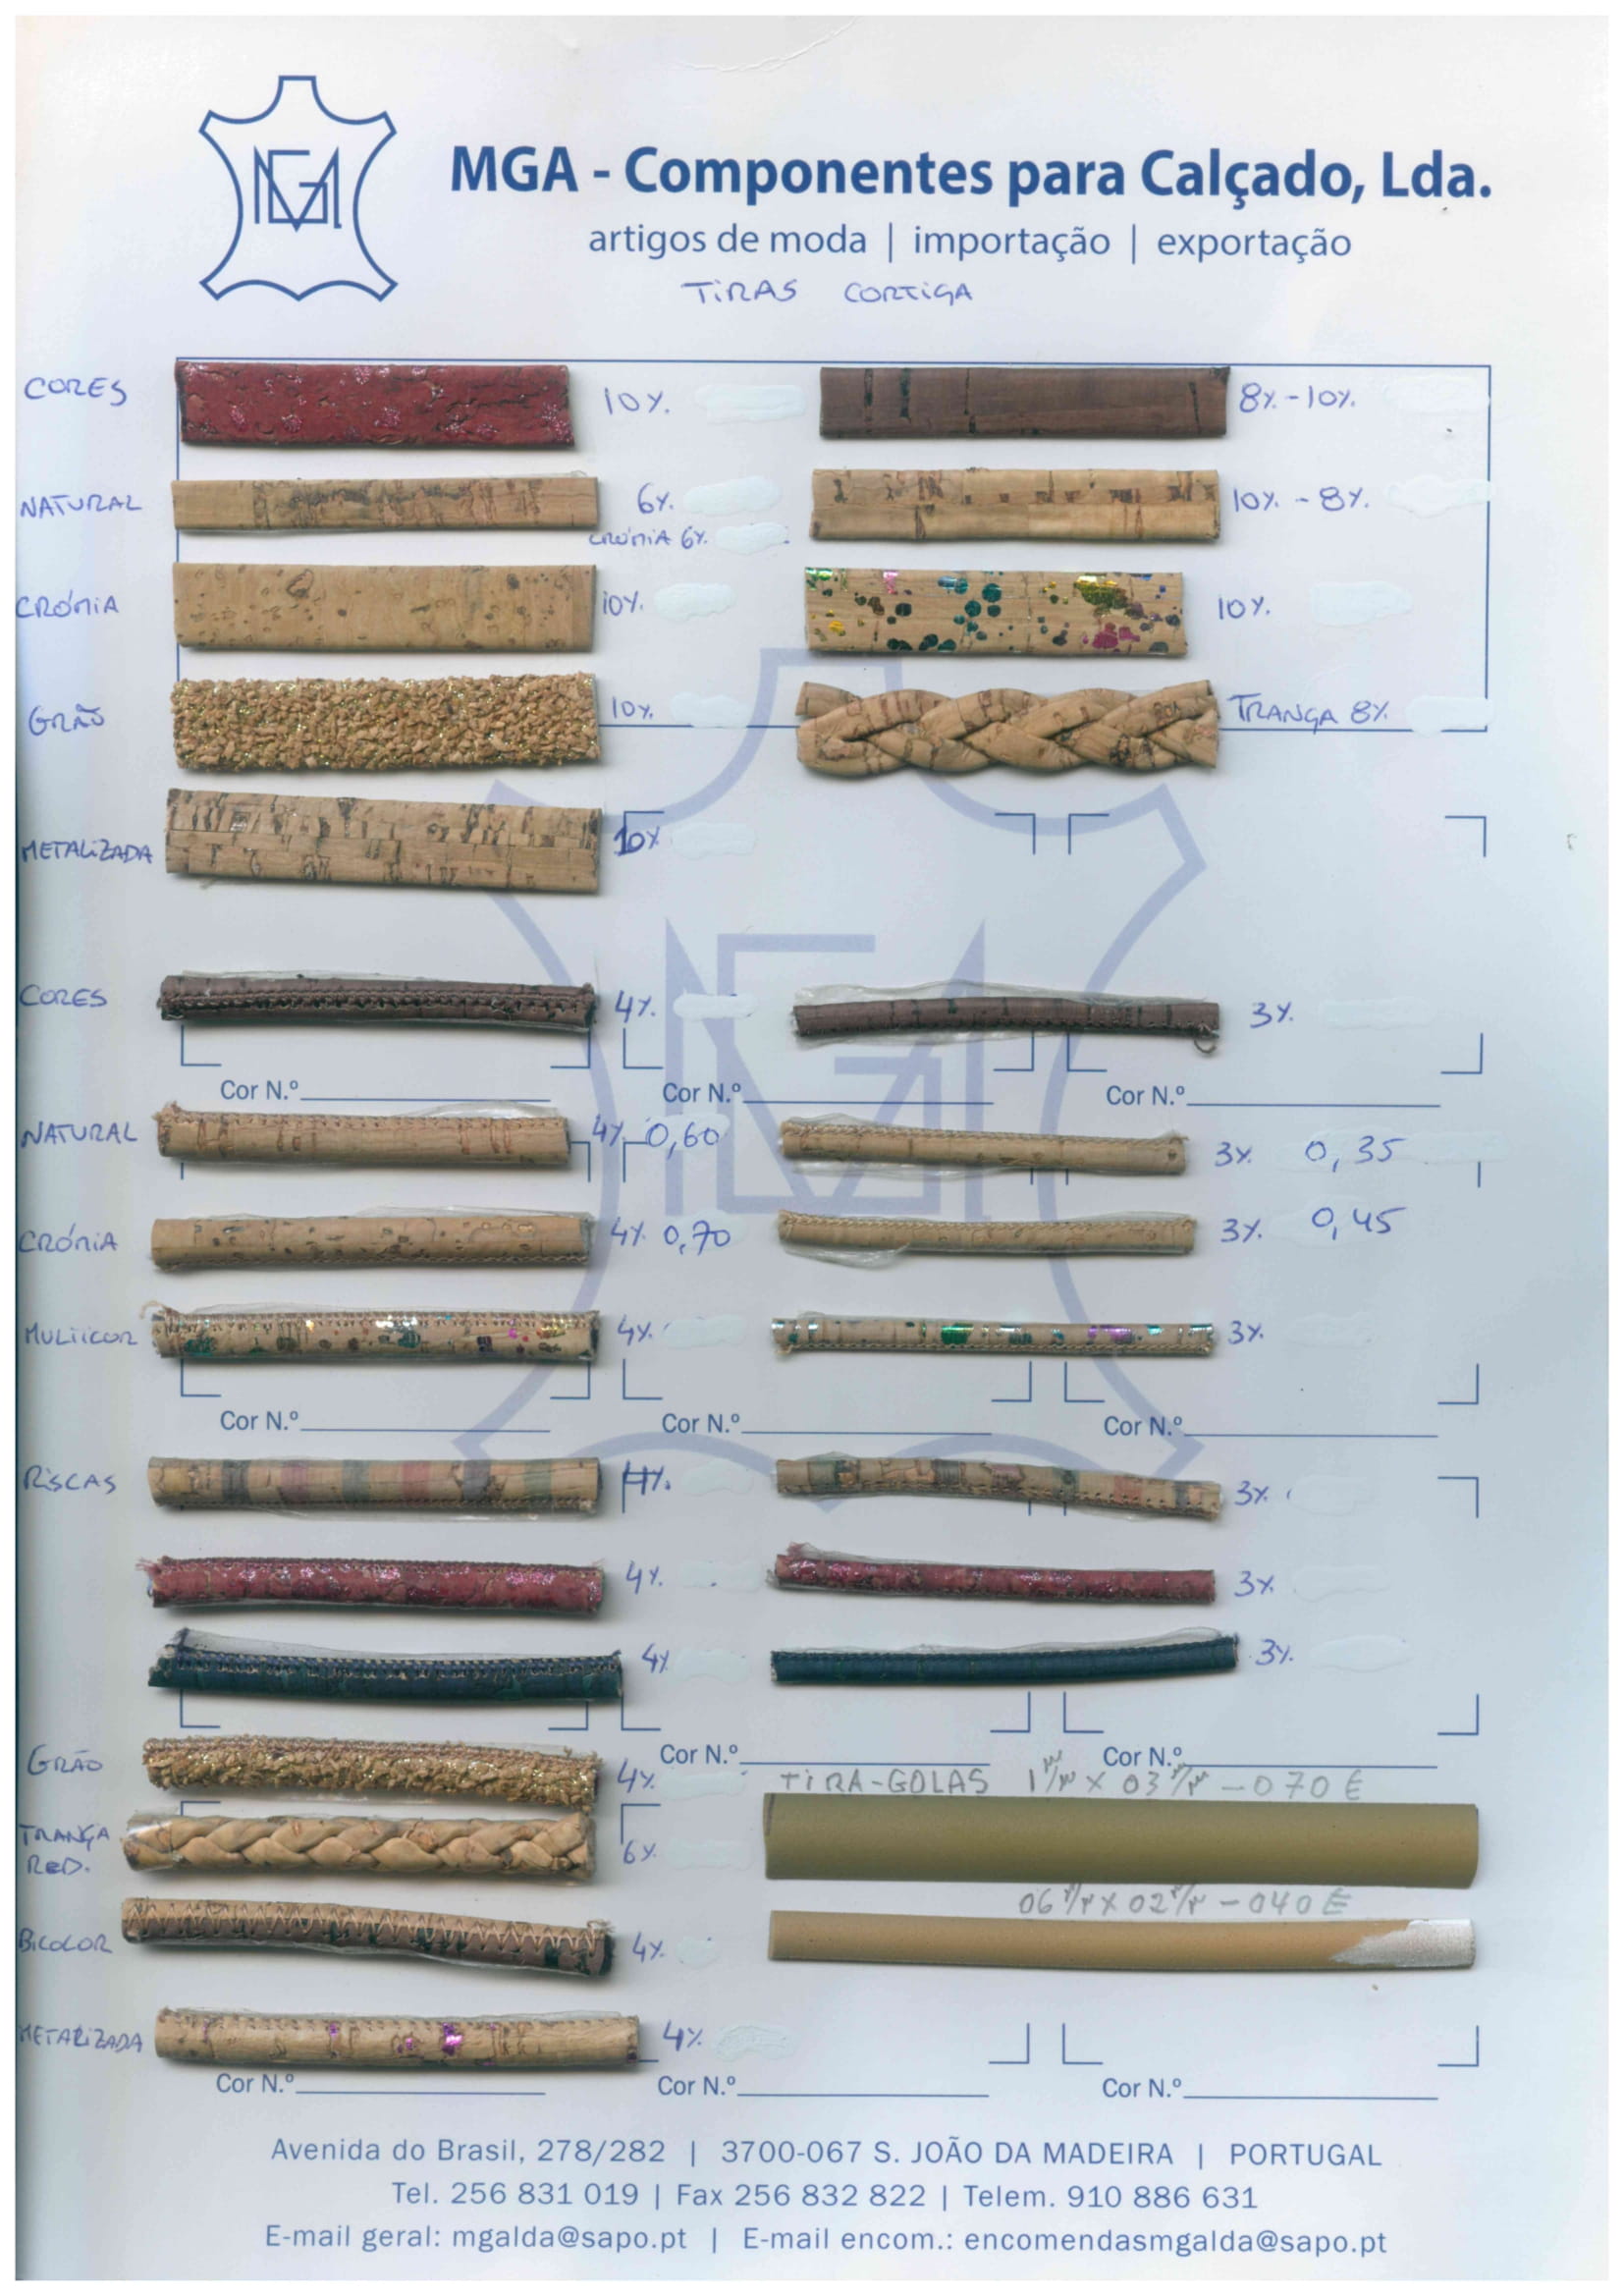 MGA - Componentes para Calçado, Lda.
artigos de moda | importação | exportação
TIRAS CORTIÇA
CORES 10%. 8%. - 10%.
NATURAL 6%. 10%. - 8%.
CRÓMIA 6%.
CRÓMIA 10%. 10%.
GRÃO 10%. TRANÇA 8%.
METALIZADA 10%
CORES 4%. 3%.
Cor N.º Cor N.º Cor N.º
NATURAL 4%. 0,60 3%. 0,35
CRÓMIA 4%. 0,70 3%. 0,45
MULTICOR 4%. 3%.
Cor N.º Cor N.º Cor N.º
RISCAS 4%. 3%.
4%. 3%.
4% 3%.
Cor N.º Cor N.º
GRÃO 4%.
TIRA-GOLAS 1 m/m X 03 m/m - 070 E
TRANÇA RED. 6%.
06 m/m X 02 m/m - 040 E
BICOLOR 4%.
METALIZADA 4%.
Cor N.º Cor N.º Cor N.º
Avenida do Brasil, 278/282 | 3700-067 S. JOÃO DA MADEIRA | PORTUGAL
Tel. 256 831 019 | Fax 256 832 822 | Telem. 910 886 631
E-mail geral: mgalda@sapo.pt | E-mail encom.: encomendasmgalda@sapo.pt